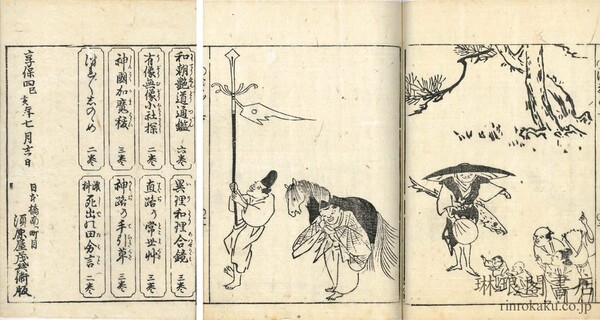 和朝艶道通鑑 六巻
異理和理合鏡 三巻
有像無像小社探 二巻
直路の常世艸 三巻
神國加魔秡 三巻
神路の手引草 三巻
しのゝめ 二巻
死出の田分言 二巻
享保四己亥年七月吉日
日本橋南一町目
須原屋茂兵衛版
琳琅閣書店
rinrokaku.co.jp